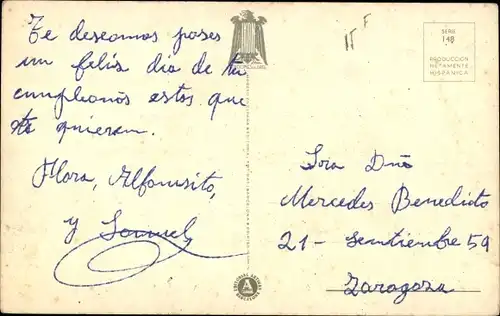 Te deseamos pases
un feliz dia de tu
cumpleanos estos que
te quieren.
Flora, Alfonsito,
y Samuel
SERIE
148
PRODUCCION
NETAMENTE
HISPANICA
Sra Dña
Mercedes Benedicto
21 - Semtiembre 59
Zaragoza
A